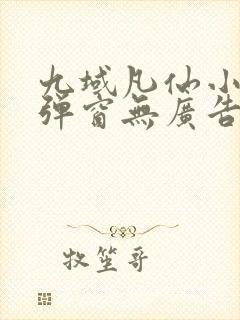 九域凡仙小
彈窗無廣告
牧笙哥